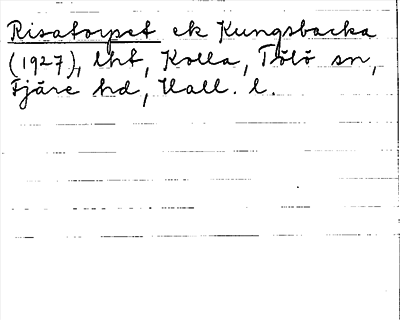 Risatorpet ek Kungsbacka
(1927), lht, Kolla, Tölö sn,
Fjäre hd, Hall. l.